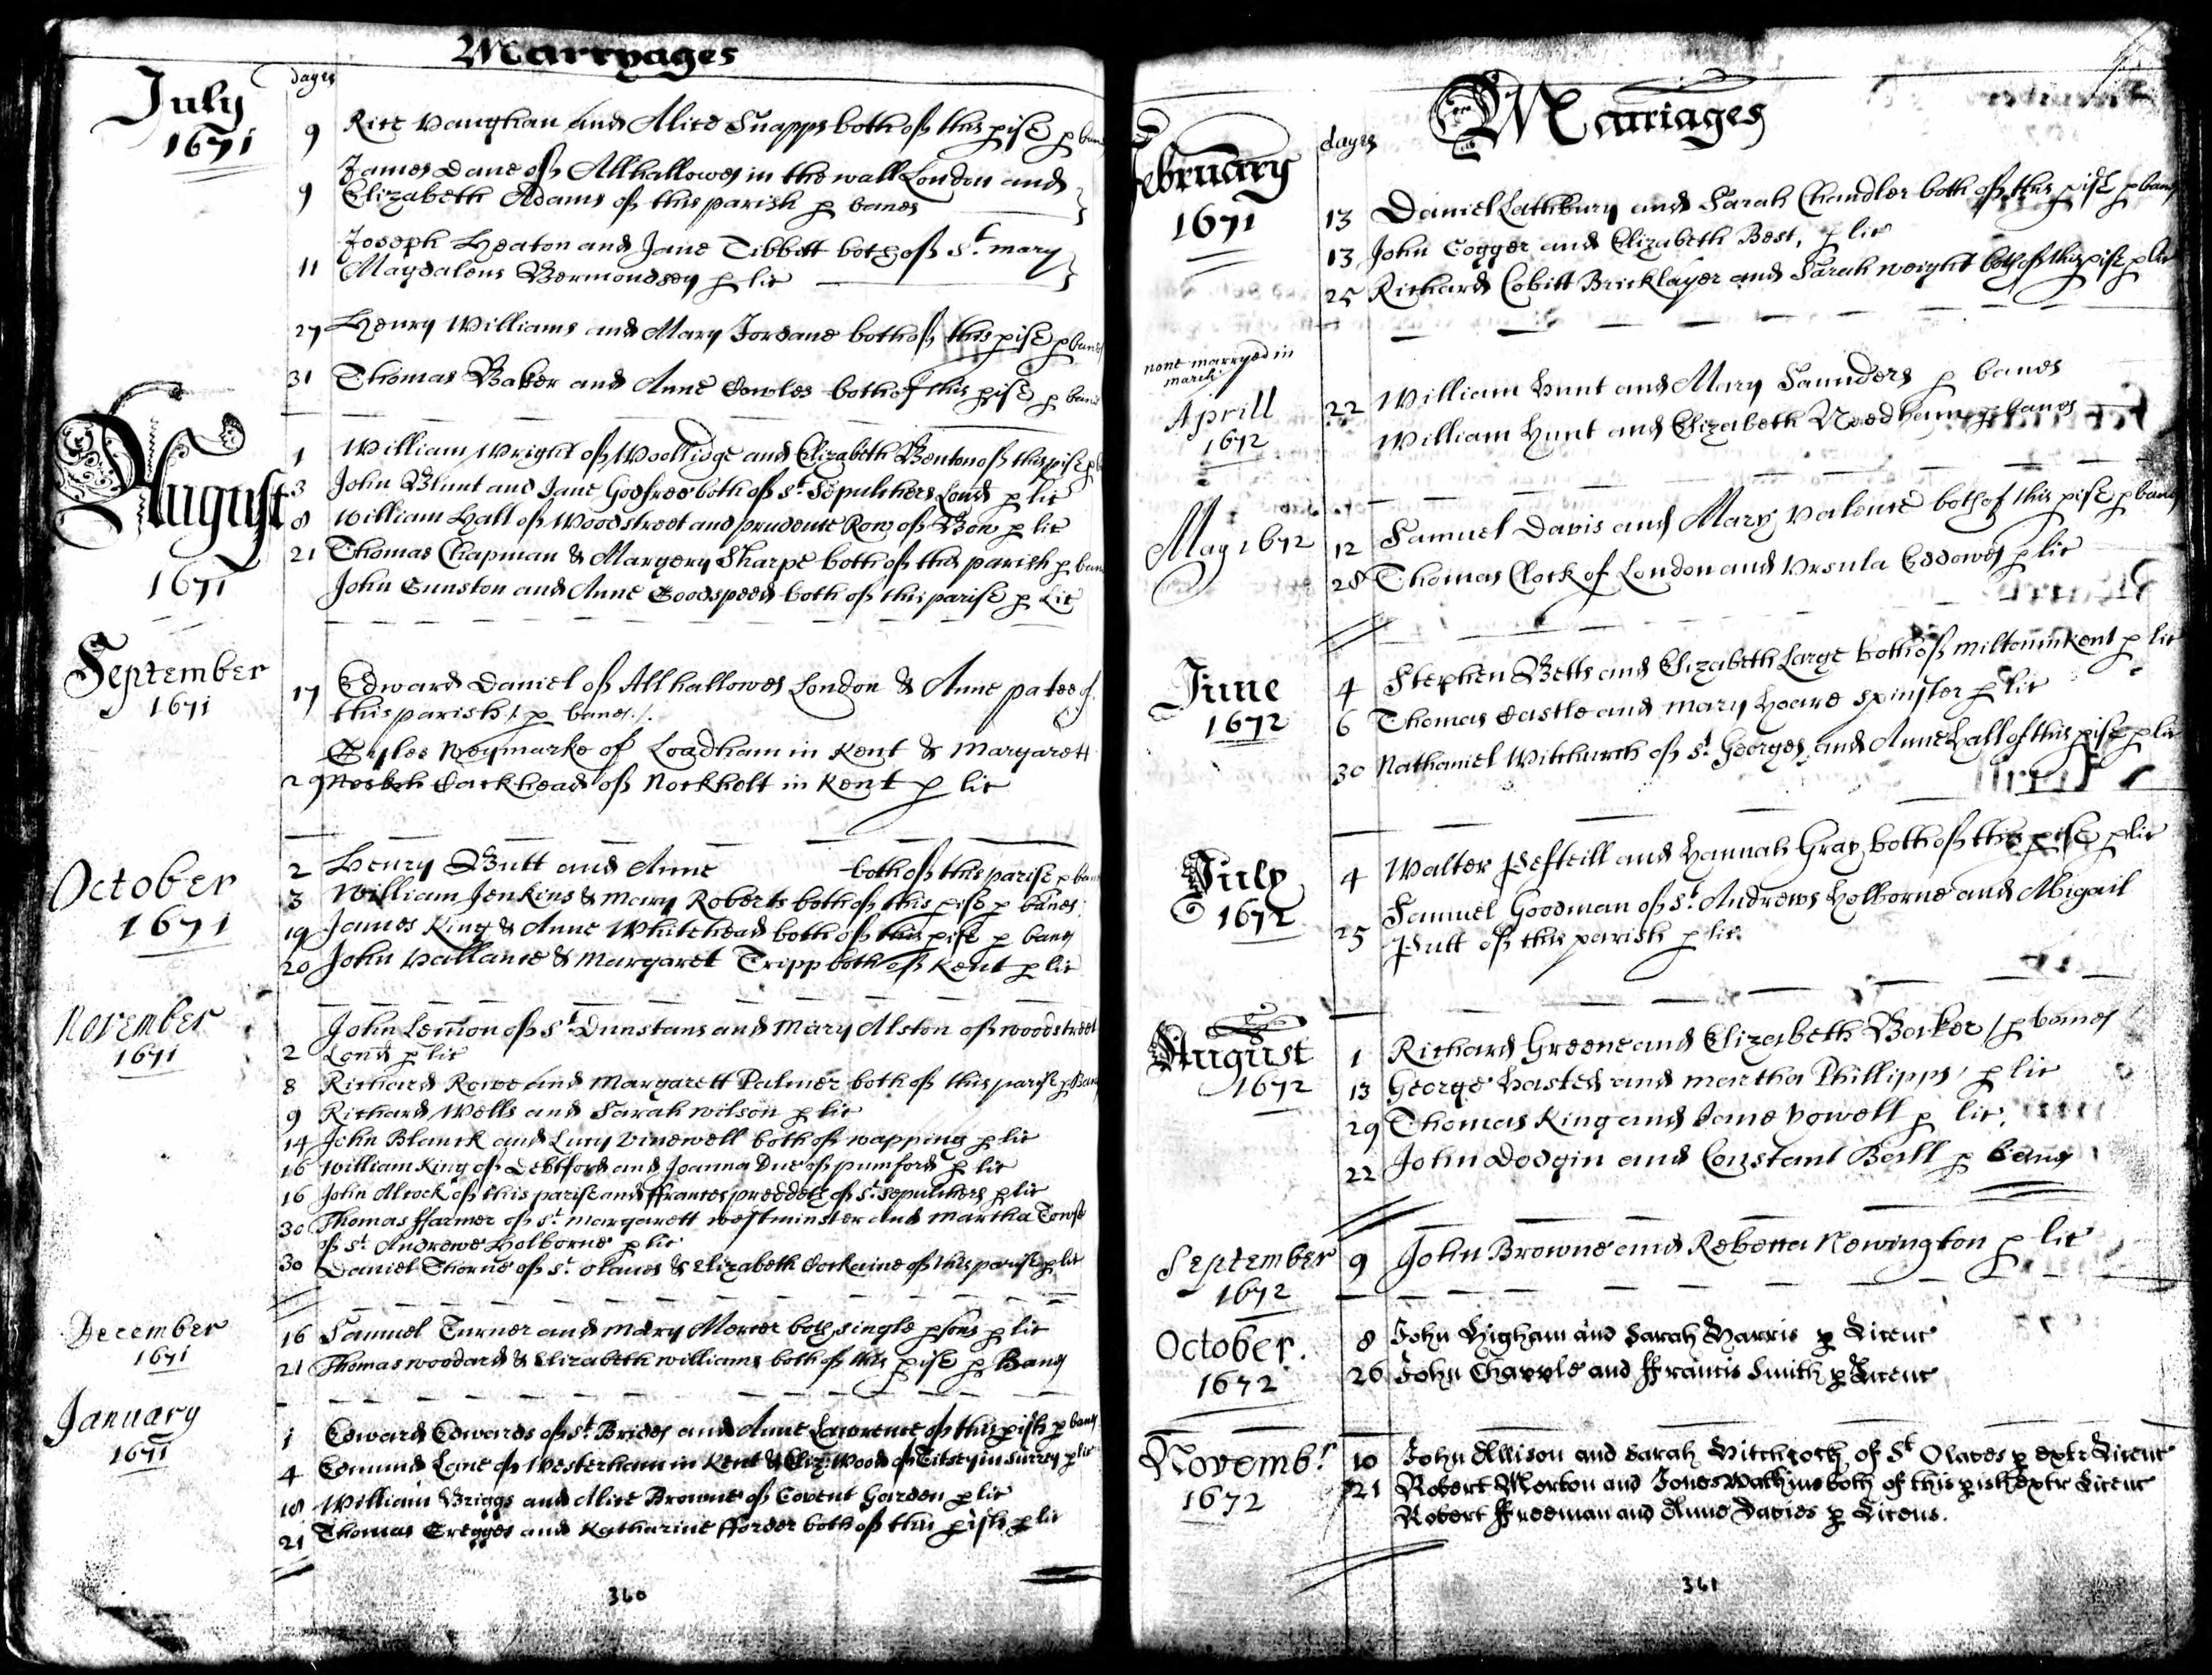 Marryages
July
1671
dayes
9 Rice Vaughan and Alice Snapps both of this pish p banes
James Dane of Allhallowes in the wall London and
9 Elizabeth Adams of this parish p banes
Joseph Heaton and Jane Tibbitt both of St. mary
11 Magdalens Bermondsey p lic
27 Henry Williams and Mary Jordane both of this pish p banes
31 Thomas Baker and Anne Cowles both of this pish p banes
August
1671
1 William Wright of Woollidge and Elizabeth Benton of this pish p
3 John Blunt and Jane Godfree both of St. Sepulchers Lond p lic
8 William Hall of Woodstreet and prudence Row of Bow p lic
21 Thomas Chapman & Margery Sharpe both of this parish p banes
John Gunston and Anne Goodspeed both of this parish p Lic
September
1671
17 Edward Daniel of Allhallowes London & Anne pates of
this parish p banes
Gyles Neymarke of Loadham in Kent & Margarett
29 Corkhead of Nockholt in Kent p lic
October
1671
2 Henry Butt and Anne both of this parish p banes
3 William Jenkins & Mary Roberts both of this pish p banes
19 James King & Anne Whitehead both of this pish p banes
20 John Vallance & Margaret Tripp both of Kent p lic
November
1671
John Lemon of St. Dunstans and Mary Alston of woodstreet
2 Lond p lic
8 Richard Rowe and Margarett Palmer both of this parish p Banes
9 Richard Wells and Sarah wilson p lic
14 John Blanck and Lucy Vinewell both of wapping p lic
16 William King of Debtford and Joanna Due of pumford p lic
16 John Alcock of this parish and ffrances preddeth of St. sepulchers p lic
30 Thomas ffarmer of St. margarett westminster and Martha Towse
of St. Andrewe Holborne p lic
30 Daniel Thorne of St. olaves & Elizabeth Cockaine of this parish p lic
December
1671
16 Samuel Turner and mary Mercer both single psons p lic
21 Thomas woodard & Elizabeth williams both of this pish p Banes
January
1671
1 Edward Edwards of St. Brides and Anne Lawrence of this pish p banes
4 Edmund Lane of Westerham in Kent & Eliz: Wood of Titsey in Surrey p lic
18 William Briggs and Alice Browne of Covent Garden p lic
21 Thomas Greggs and Katharine fforder both of this pish p lic
360
Marriages
dayes
February
1671
13 Daniel Lathbury and Sarah Chandler both of this pish p banes
13 John Cogger and Elizabeth Best, p lic
25 Richard Cobitt Bricklayer and Sarah weight both of this pish p lic
none marryed in
march
Aprill
1672
22 William Hunt and Mary Saunders p banes
William Hunt and Elizabeth Needham p banes
May 1672
12 Samuel Davis and Mary Valence both of this pish p banes
28 Thomas Clock of London and Ursula Eddowes p lic
June
1672
4 Stephen Betts and Elizabeth Large both of milton in Kent p lic
6 Thomas Castle and mary Hoare spinster p lic
30 Nathaniel Witchurch of St. Georges and Anne Hall of this pish p lic
July
1672
4 Walter Pesteill and Hannah Gray both of this pish p lic
Samuel Goodman of St. Andrews Holborne and Abigail
25 Putt of this parish p lic
August
1672
1 Richard Greene and Elizabeth Barker p banes
13 George Hasted and martha Phillipps p lic
29 Thomas King and Jane Vowell p lic:
22 John Dodgin and Constant Ball p banes
September
1672
9 John Browne and Rebecca Newington p lic
October.
1672
8 John Higham and Sarah Harris p Licenc
26 John Chapple and ffrancis Smith p Licenc
Novembr
1672
10 John Allison and Sarah Hitchcock of St Olaves p extr Licenc
21 Robert Morton and Jones Watkins both of this pish extr Licenc
Robert ffreeman and Anne Davies p Licens.
361